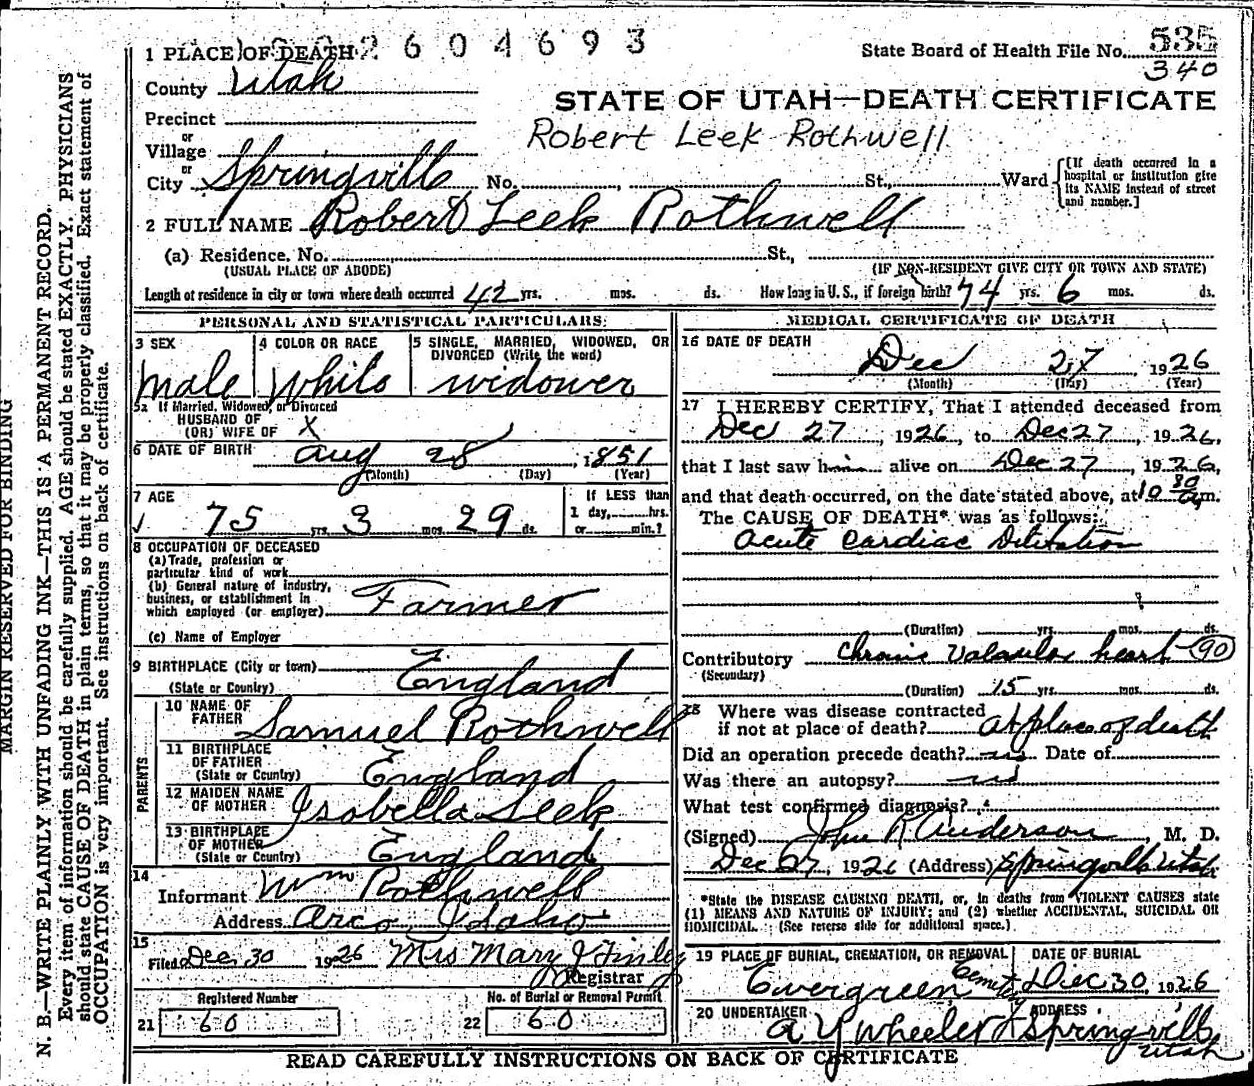 2604693
State Board of Health File No. 535
340
1 PLACE OF DEATH
County Utah
STATE OF UTAH—DEATH CERTIFICATE
Precinct
Robert Leek Rothwell
or
Village
or
City Springville No. , St., Ward
[If death occurred in a
hospital or institution give
its NAME instead of street
and number.]
2 FULL NAME Robert Leek Rothwell
(a) Residence. No. , St.,
(USUAL PLACE OF ABODE) (IF NON-RESIDENT GIVE CITY OR TOWN AND STATE)
Length of residence in city or town where death occurred 42 yrs. mos. ds. How long in U. S., if foreign birth? 74 yrs. 6 mos. ds.
PERSONAL AND STATISTICAL PARTICULARS
3 SEX 4 COLOR OR RACE 5 SINGLE, MARRIED, WIDOWED, OR
DIVORCED (Write the word)
Male White widower
5a If Married, Widowed, or Divorced
HUSBAND OF
(OR) WIFE OF X
6 DATE OF BIRTH Aug 28, 1851
(Month) (Day) (Year)
7 AGE If LESS than
1 day, hrs.
75 yrs. 3 mos. 29 ds. or min.?
8 OCCUPATION OF DECEASED
(a) Trade, profession or
particular kind of work
(b) General nature of industry,
business, or establishment in
which employed (or employer) Farmer
(c) Name of Employer
9 BIRTHPLACE (City or town)
(State or Country) England
PARENTS
10 NAME OF
FATHER Samuel Rothwell
11 BIRTHPLACE
OF FATHER
(State or Country) England
12 MAIDEN NAME
OF MOTHER Isabella Leek
13 BIRTHPLACE
OF MOTHER
(State or Country) England
14
Informant Wm Rothwell
Address Arco Idaho
15
Filed Dec 30 1926 Mrs Mary J Finley
Registrar
Registered Number No. of Burial or Removal Permit
21 60 22 60
MEDICAL CERTIFICATE OF DEATH
16 DATE OF DEATH
Dec 27, 1926
(Month) (Day) (Year)
17 I HEREBY CERTIFY, That I attended deceased from
Dec 27, 1926, to Dec 27, 1926,
that I last saw him alive on Dec 27, 1926,
and that death occurred, on the date stated above, at 10 30 am.
The CAUSE OF DEATH* was as follows:
Acute Cardiac Dilitation
(Duration) yrs. mos. ds.
Contributory Chronic Valvular heart 90
(Secondary)
(Duration) 15 yrs. mos. ds.
18 Where was disease contracted
if not at place of death? at place of death
Did an operation precede death? no Date of
Was there an autopsy? no
What test confirmed diagnosis?
(Signed) John R Anderson, M. D.
Dec 27, 1926 (Address) Springville Utah
*State the DISEASE CAUSING DEATH, or, in deaths from VIOLENT CAUSES state
(1) MEANS AND NATURE OF INJURY; and (2) whether ACCIDENTAL, SUICIDAL OR
HOMICIDAL. (See reverse side for additional space.)
19 PLACE OF BURIAL, CREMATION, OR REMOVAL DATE OF BURIAL
Evergreen Cemetery Dec 30, 1926
20 UNDERTAKER ADDRESS
A Y Wheeler Springville
Utah
READ CAREFULLY INSTRUCTIONS ON BACK OF CERTIFICATE
MARGIN RESERVED FOR BINDING
N. B.—WRITE PLAINLY WITH UNFADING INK—THIS IS A PERMANENT RECORD.
Every item of information should be carefully supplied. AGE should be stated EXACTLY. PHYSICIANS
should state CAUSE OF DEATH in plain terms, so that it may be properly classified. Exact statement of
OCCUPATION is very important. See instructions on back of certificate.